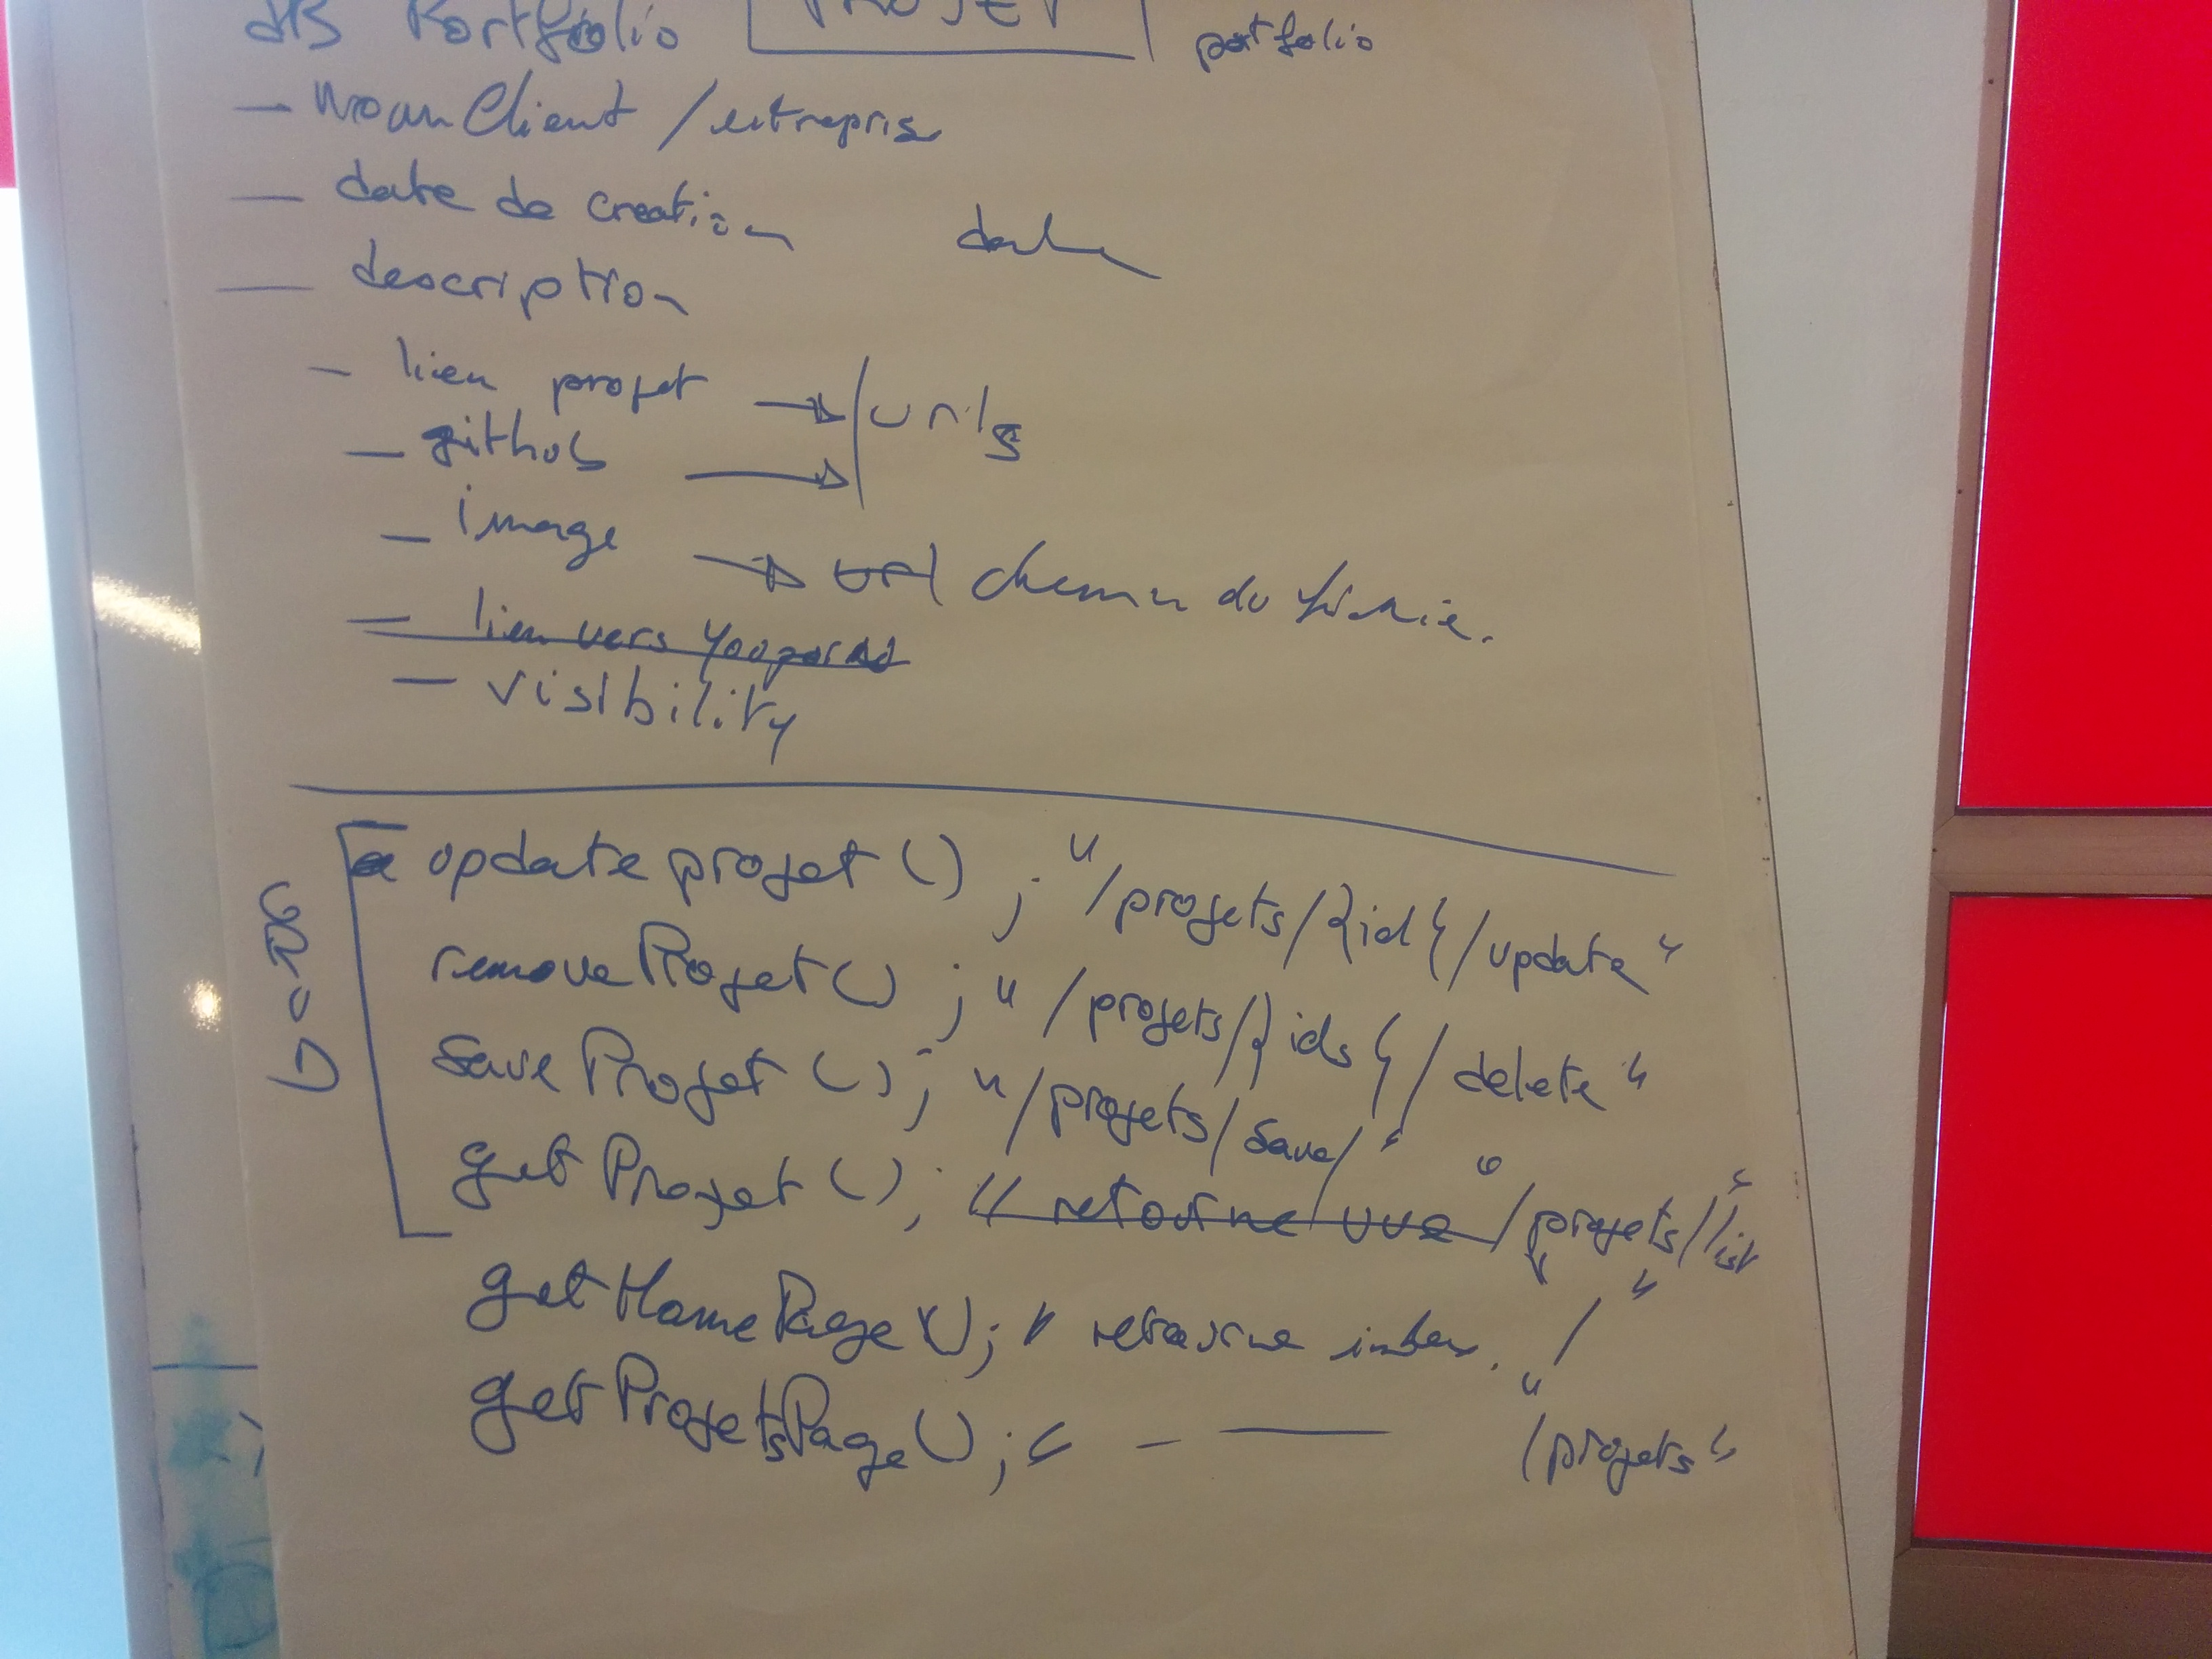 DB Portfolio PROJET portfolio
— nom Client / entreprise
— date de creation date
— description
— lien projet → urls
— github →
— image → url chemin du fichie.
— lien vers
— visibility
update projet () ; "/projets/}id{/update"
remove Projet () ; "/projets/}ids{/delete"
Save Projet () ; "/projets/save/"
get Projet () ; // retourne vue "/projets/list"
get Home Page () ; // retourne index. "/"
get Projets Page () ; " - — "/projets"